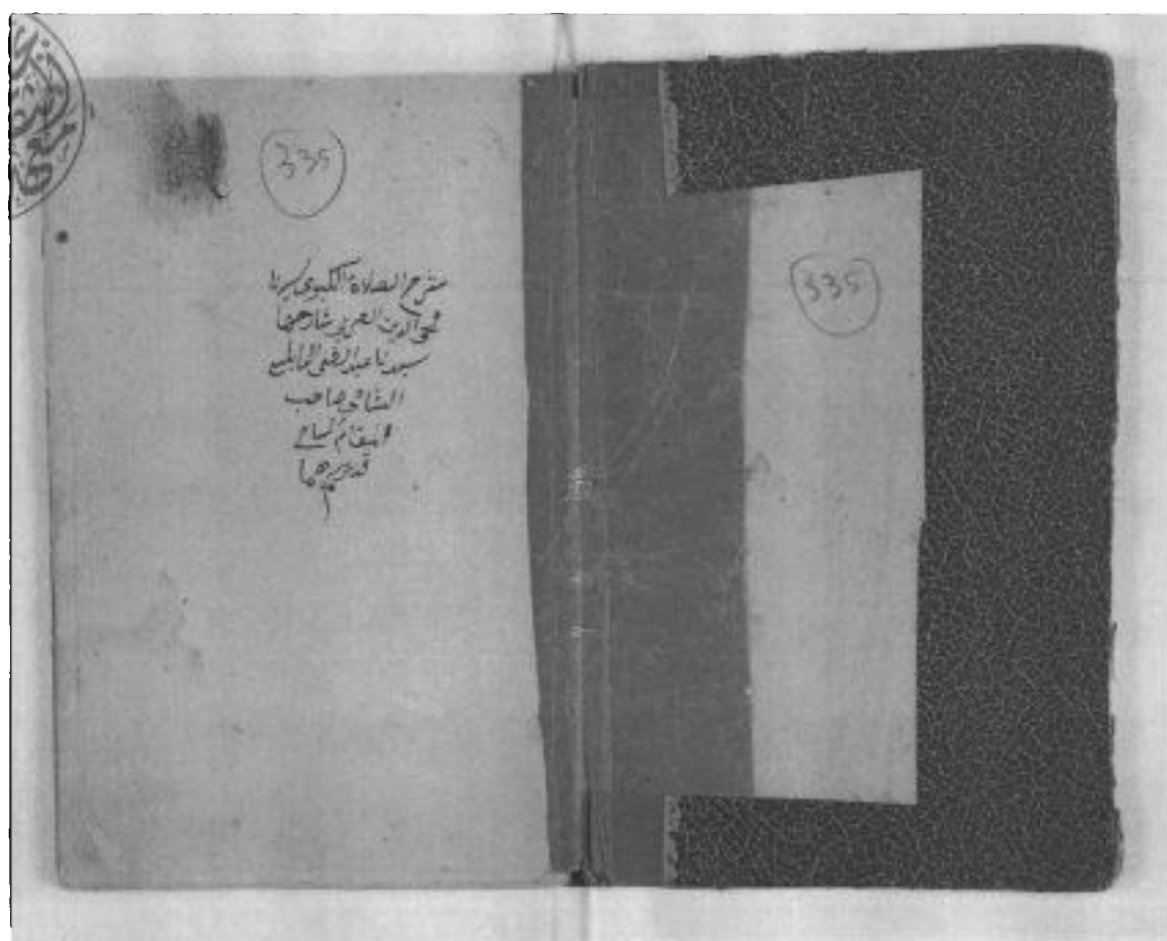 335
شرح الصلاة الكبرى لسيدنا
محي الدين العربي شارحها
سيدنا عبد الغني النابلسي
الشامي صاحب
المقام السامي
قدس سرهما
م
335